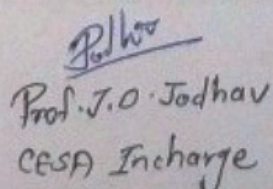 Prof. J.D. Jadhav
CESA Incharge